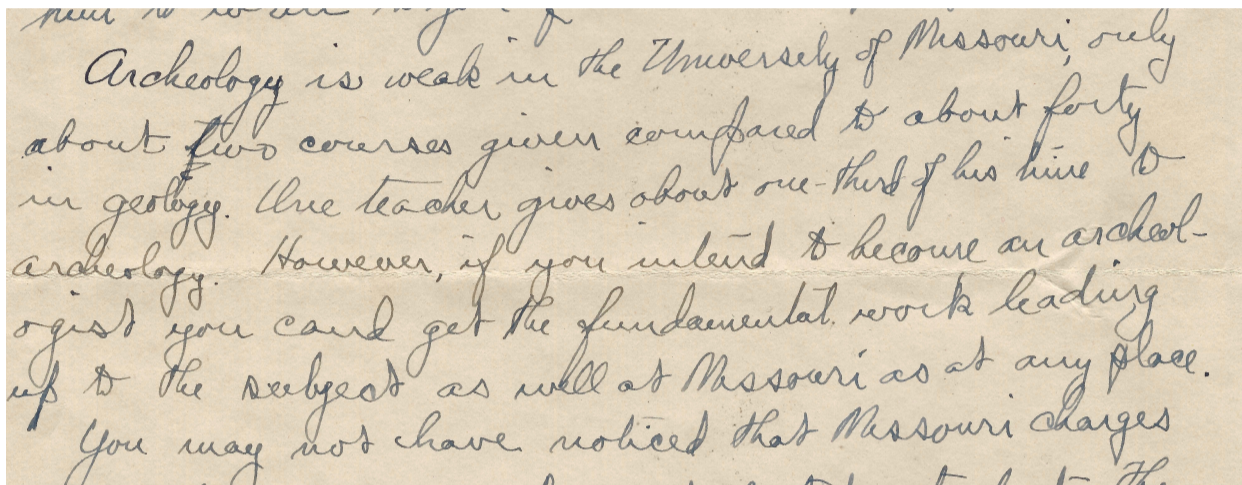 Archeology is weak in the University of Missouri, only
about two courses given compared to about forty
in geology. One teacher gives about one-third of his time to
archeology. However, if you intend to become an archeol-
ogist you could get the fundamental work leading
up to the subject as well at Missouri as at any place.
You may not have noticed that Missouri charges
the